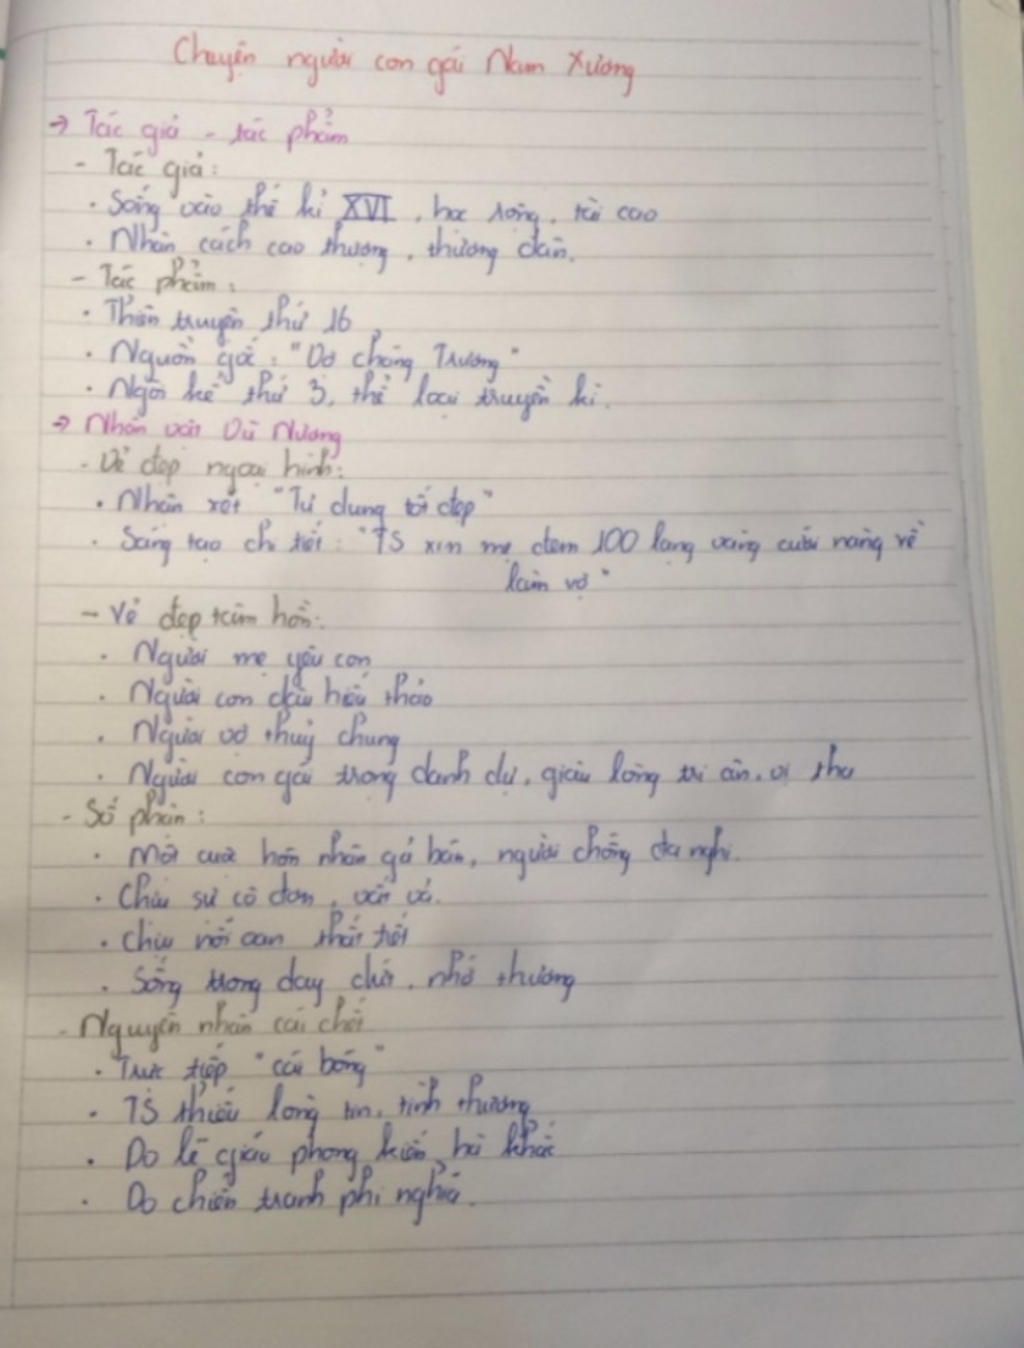 Chuyện người con gái Nam Xương
→ Tác giả - tác phẩm
- Tác giả:
· Sống vào thế kỉ XVI, học rộng, tài cao
· Nhân cách cao thượng, thương dân.
- Tác phẩm:
· Thiên truyện thứ 16
· Nguồn gốc: "Vợ chàng Trương"
· Ngôi kể thứ 3, thể loại truyền kì.
→ Nhân vật Vũ Nương
- Vẻ đẹp ngoại hình:
· Nhận xét "Tư dung tốt đẹp"
· Sáng tạo chi tiết: "TS xin mẹ đem 100 lạng vàng cưới nàng về
làm vợ"
- Vẻ đẹp tâm hồn:
· Người mẹ yêu con
· Người con dâu hiếu thảo
· Người vợ thuỷ chung
· Người con gái trọng danh dự, giàu lòng tri ân, vị tha
- Số phận:
· Một cuộc hôn nhân gả bán, người chồng đa nghi.
· Chịu sự cô đơn, vất vả.
· Chịu nỗi oan thất tiết
· Sống trong day dứt, nhớ thương
- Nguyên nhân cái chết
· Trực tiếp "cái bóng"
· TS thiếu lòng tin, tình thương
· Do lễ giáo phong kiến hà khắc
· Do chiến tranh phi nghĩa.